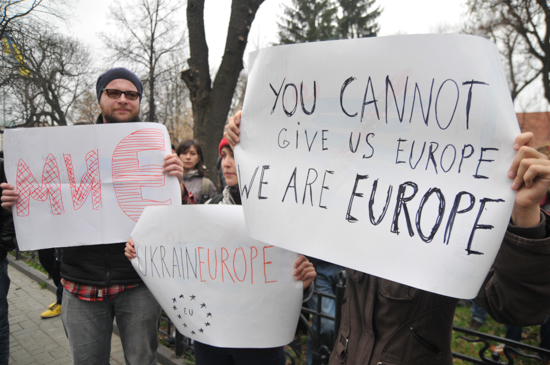 МИ Є
UKRAINEUROPE
EU
YOU CANNOT
GIVE US EUROPE
WE ARE EUROPE